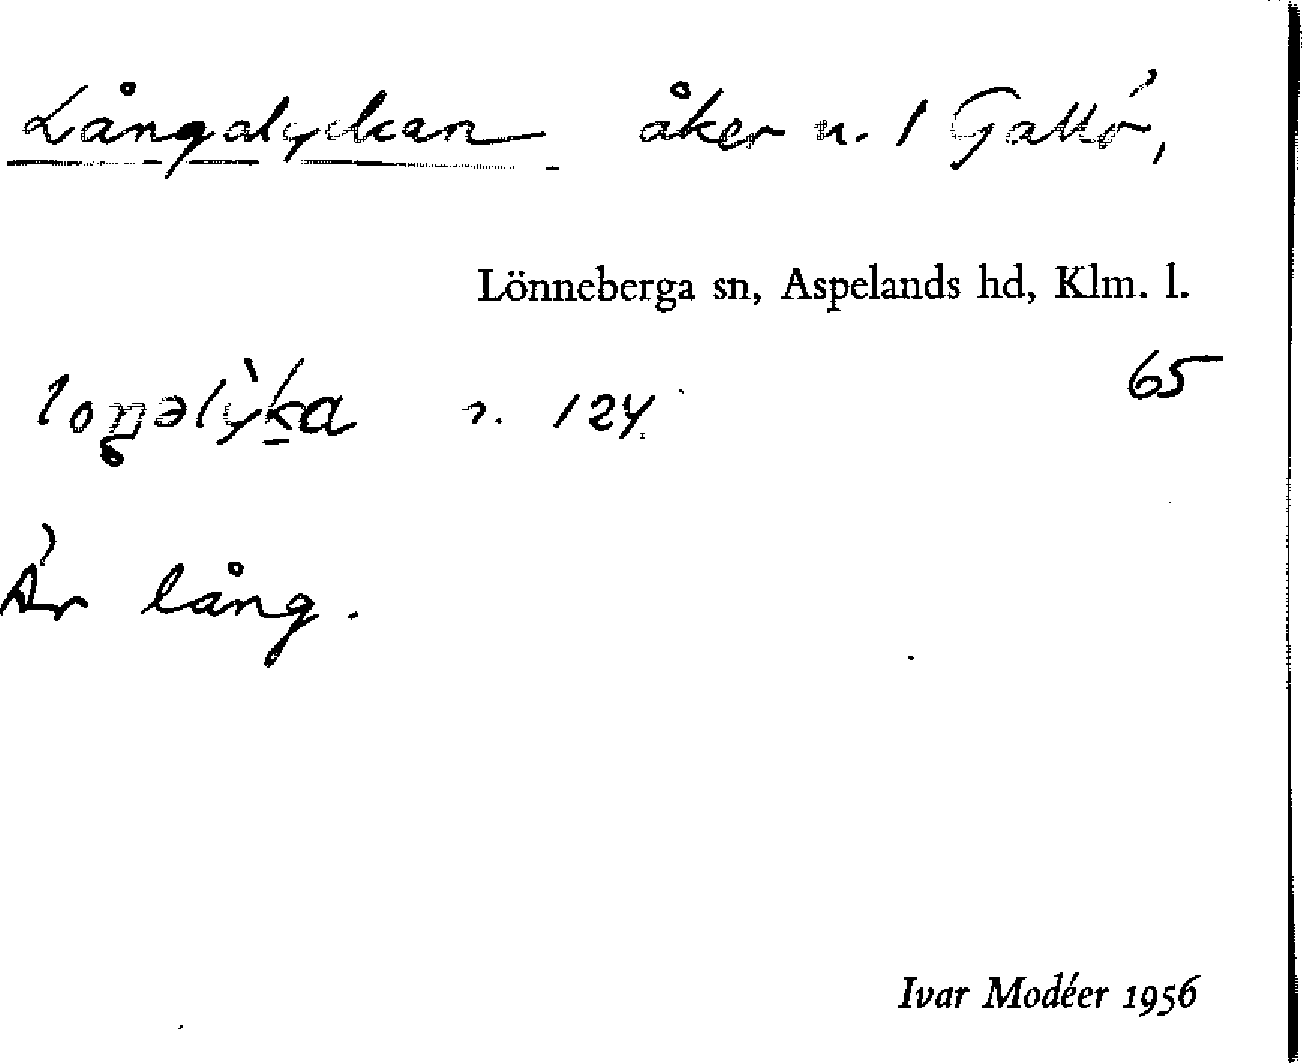 Långalyckan åker n. 1 Gallö,
Lönneberga sn, Aspelands hd, Klm. l.
65
loŋəlỳka n. 124
Är lång.
Ivar Modéer 1956